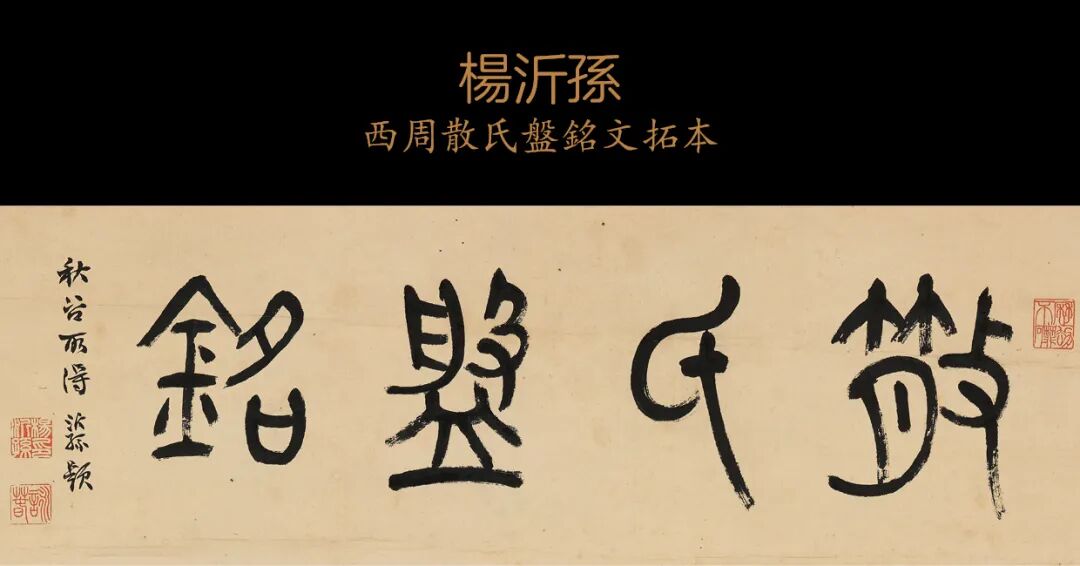 楊沂孫
西周散氏盤銘文拓本
散氏盤銘
秋谷所得 沂孫題